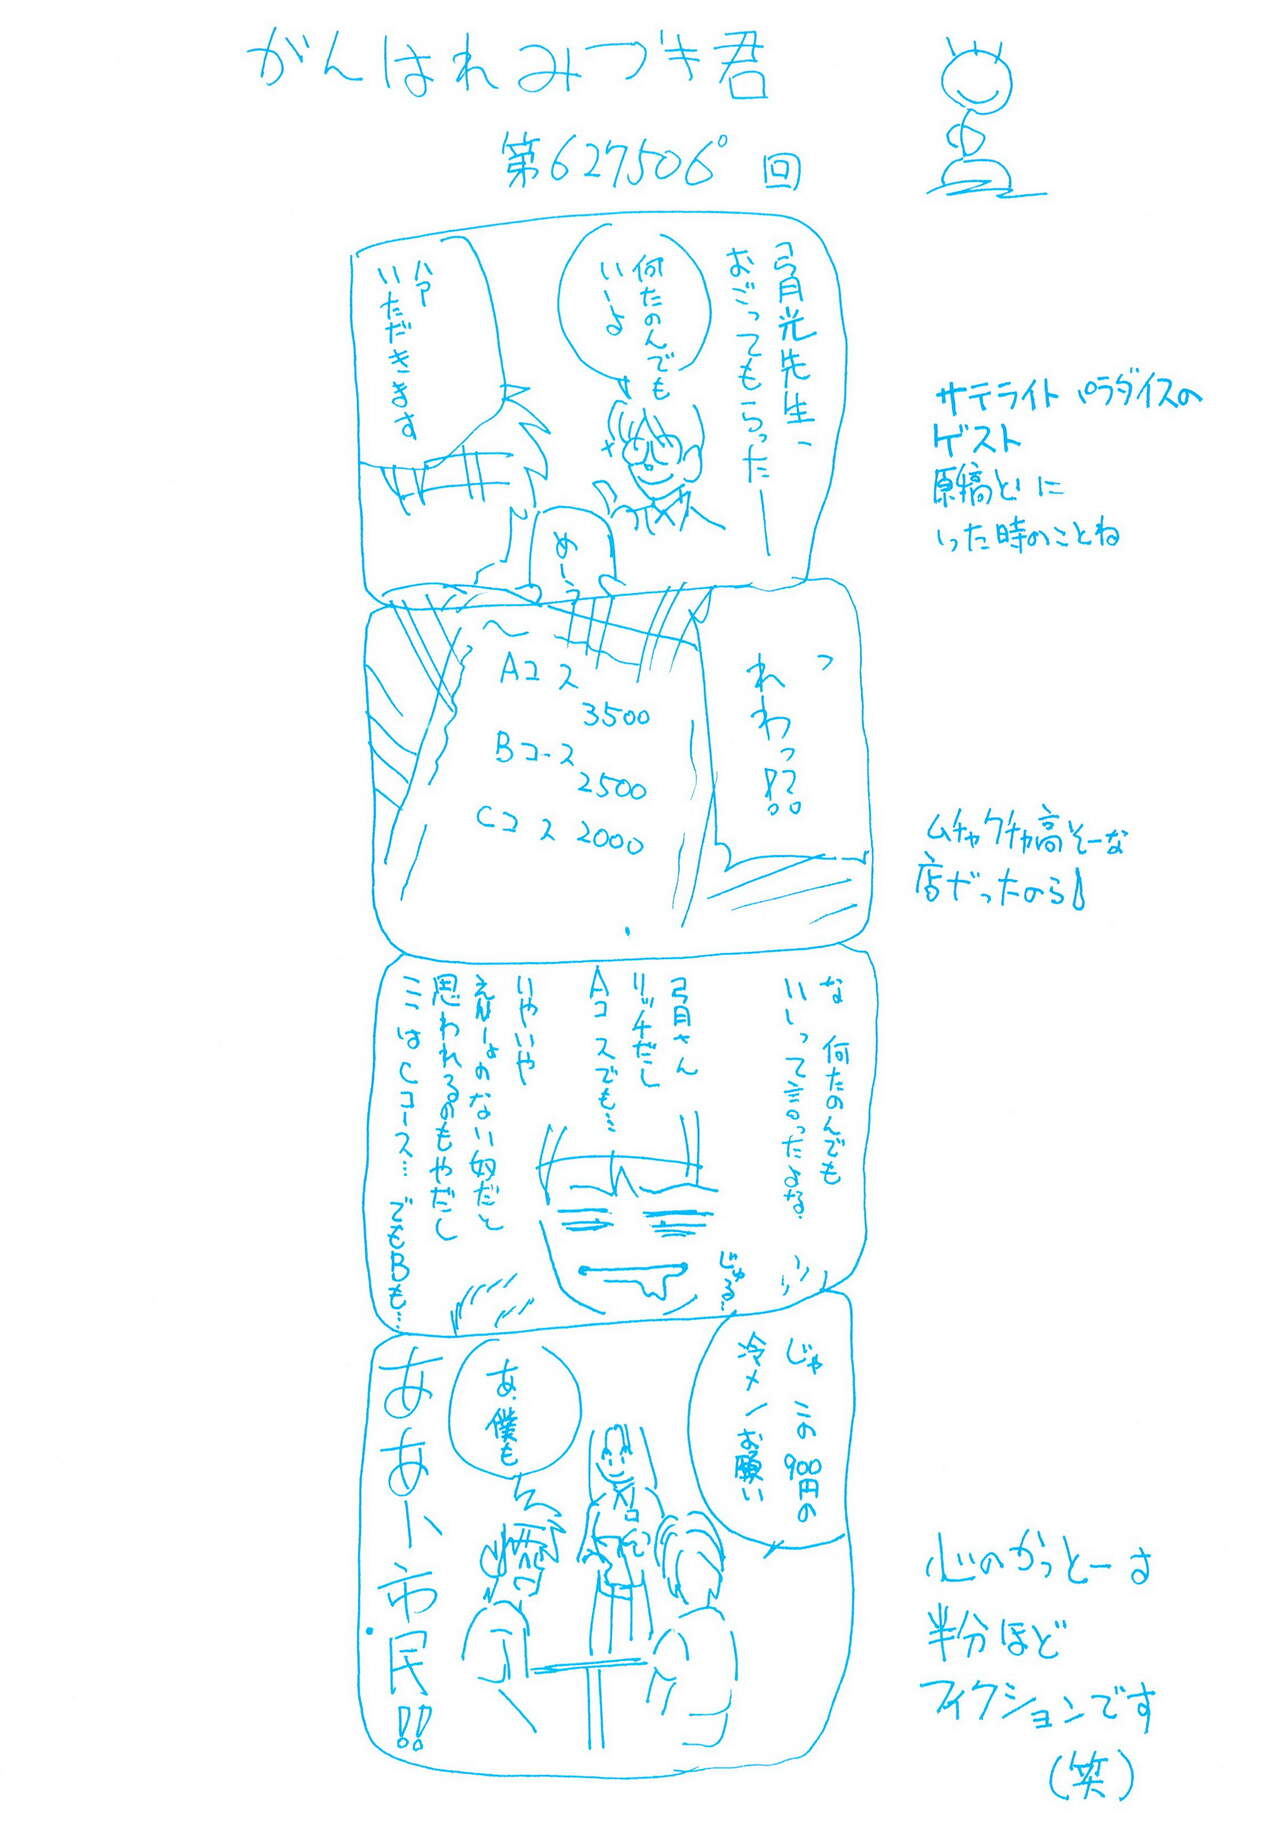 がんばれみづき君
第627506回
弓月光先生、
おごってもらったー
何たのんでも
いーよ
ハァー
いただきます
めーう
サテライトパラダイスの
ゲスト
原稿とりに
いった時のことね
っ
れわっ!?
Aコース
3500
Bコース
2500
Cコース 2000
ムチャクチャ高そーな
店だったのら
な 何たのんでも
いいって言ったよな
じゅる
弓月さん
リッチだし
Aコースでも…
いやいや
えんりょのない奴だと
思われるのもやだし
ここはCコース… でもBも…
じゃ この900円の
冷メンお願い
あ、僕も
ああー、市民!!
心のかっとーは
半分ほど
フィクションです
(笑)